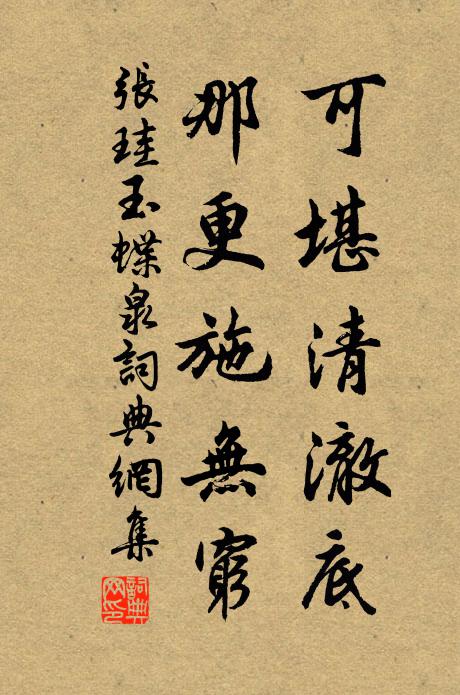 可堪清澈底
那更施無窮
張珪玉蝶泉詞典網集
詞典网印